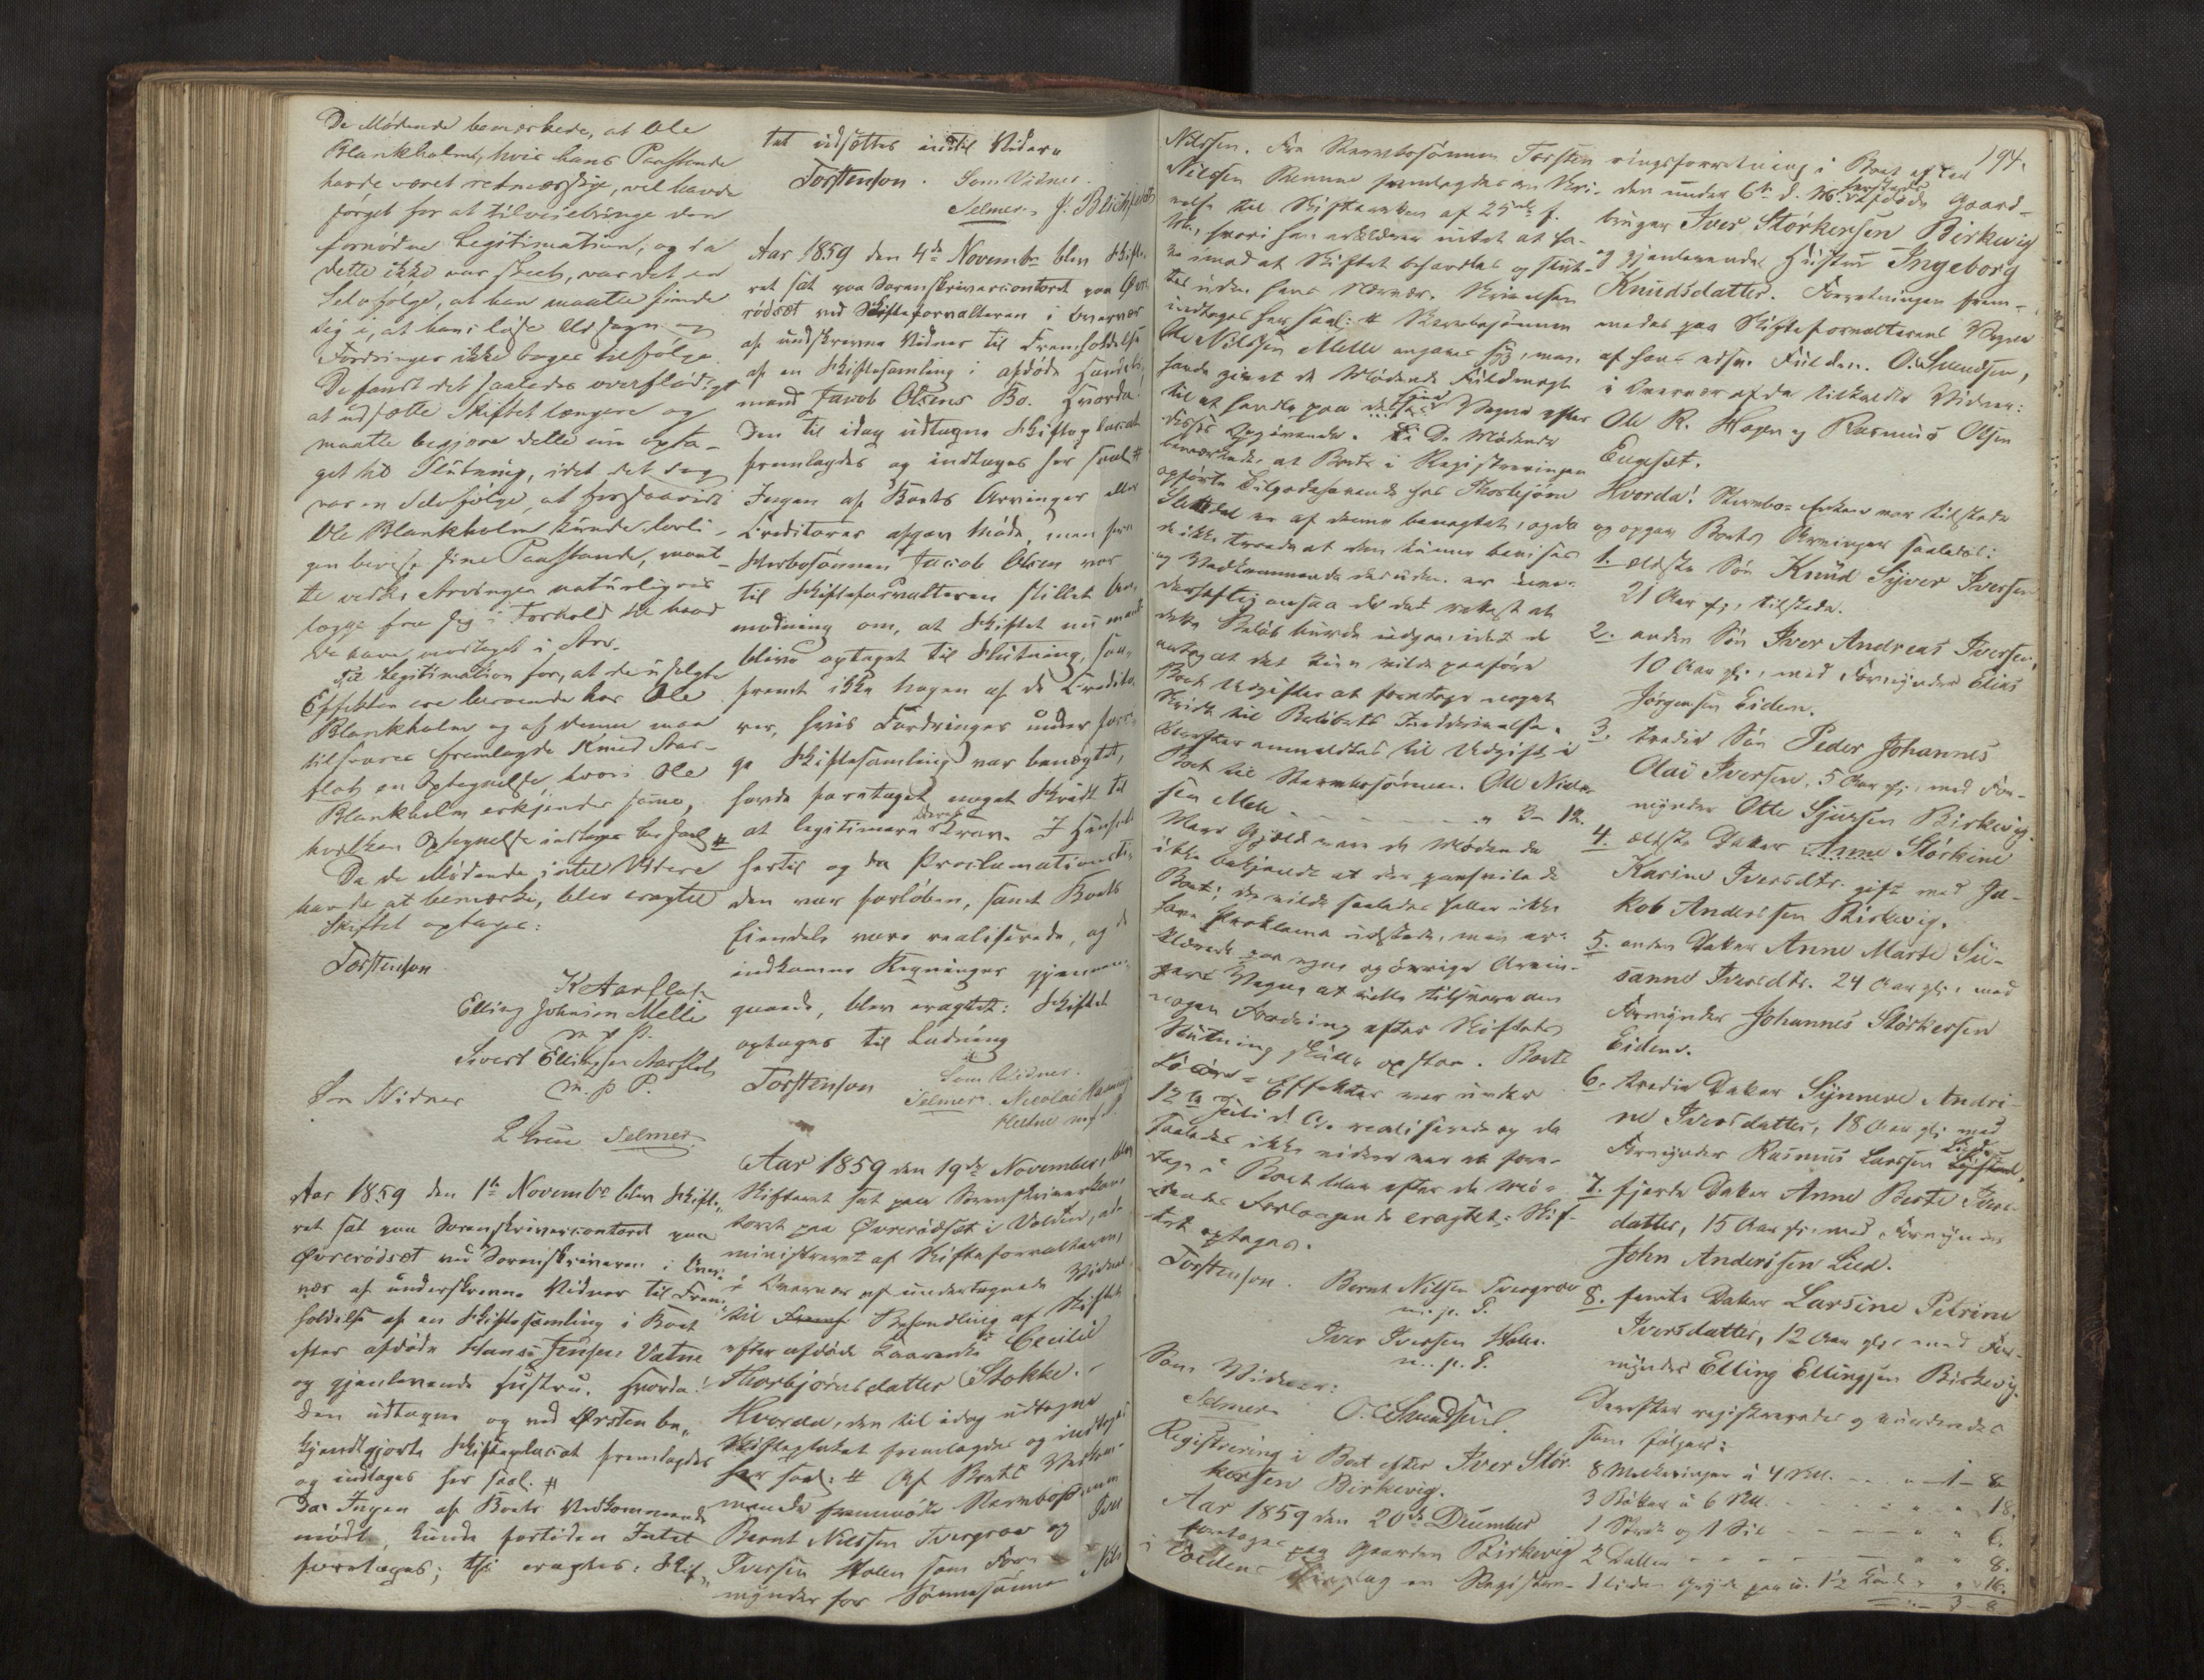 De Mødende bemærkede, at Ole
Blankholm, hvis hans Paastande
havde været retmæssige, vel havde
sørget for at tilveiebringe den
fornødne Legitimation, og da
dette ikke var skeet, var det en
Selvfølge, at han maatte finde
sig i, at hans løse Udsagn og
Fordringer ikke toges tilfølge.
De fandt det saaledes overflødigt
at udsætte Skiftet længere og
maatte begjære dette nu opta-
get til Slutning, idet det dog
var en Selvfølge, at forsaavidt
Ole Blankholm kunde lovli-
gen bevise sine Paastande, maat-
te vedk. Arvinger naturligvis
lægge fra sig i Forhold til hvad
de have modtaget i Arv.
Til Legitimation for, at de usolgte
Effekter ere beroende hos Ole
Blankholm og af denne maa
tilsvares fremlagde Knud Aar-
flot en Optegnelse, hvori Ole
Blankholm erkjender samme,
hvilken Optegnelse indtages her saal #
Da de Mødende intet Videre
havde at bemærke, blev eragtet
Skiftet optages:
Torstenson
K Aarflot
Elling Johnsen Melle
m. p. P.
Sivert Ellingsen Aarflot
m. p. P.
Som Vidner
Selmer
Aar 1859 den 1ste Novembr blev Skifte-
ret sat paa Sorenskrivercontoret paa
Øvrerødsæt ved Sorenskriveren i Over-
vær af underskrevne Vidner til Frem-
holdelse af en Skiftesamling i Boet
efter afdøde Hans Jensen Vatne
og gjenlevende Hustru. Hvorda!
Den udtagne og ved Ørsten be-
kjendtgjorte Skifteplacat fremlagdes
og indtages her saal. #
Da Ingen af Boets Vedkommende
mødt, kunde fortiden Intet
foretages; thi eragtes: Skif-
tet udsættes indtil Videre
Torstenson. Som Vidner.
Selmer. J. Blichfeldt
Aar 1859 den 4de Novembr blev Skifte-
ret sat paa Sorenskrivercontoret paa Øvre-
rødsæt ved Skifteforvalteren i Overvær
af undskrevne Vidner til Fremholdelse
af en Skiftesamling i afdøde Handels-
mand Jacob Olsens Bo. Hvorda!
Den til idag udtagne Skifteplacat
fremlagdes og indtages her saal #
Ingen af Boets Arvinger eller
Creditorer afgav Møde, men fra
Stervbosønnen Jacob Olsen var
til Skifteforvalteren stillet An-
modning om, at Skiftet nu maatte
blive optaget til Slutning, saa-
fremt ikke nogen af de Credito-
rer, hvis Fordringer under forri-
ge Skiftesamling var benægtet,
havde foretaget noget Skridt til
at legitimere deres Krav. I Henseende
hertil og da Proclamationsti-
den var forløben, samt Boets
Eiendele vare realiserede, og de
indkomne Regninger gjennem-
gaaede, blev eragtet: Skiftet
optages til Ludning
Torstenson
Som Vidner.
Selmer. Nicolai
Aar 1859 den 19de November, blev
Skifteret sat paa Sorenskriverkon-
toret paa Øvrerødsæt i Volden, ad-
ministreret af Skifteforvalteren,
i Overvær af undertegnede Vidner
til Behandling af Skiftet
efter afdøde Cecilie
Thorbjørnsdatter Stokke.
Hvorda, den til idag udtagne
Skifteplakat fremlagdes og indtages
her saal: # Af Boets Vedkom-
mende fremmødte Stervbosønnen
Bernt Nilssen Tvergrov og Iver
Iversen Holen som For-
mynder for Sønnesønnen Nils
Nilssen. Fra Stervbosønnen Torsten
Nilssen Renne fremlagdes en Skri-
velse til Skifteretten af 25de f.
M., hvori han erklærer intet at ha-
ve imod at Skiftet behandles og slut-
tes uden hans Nærvær. Skrivelsen
indtages her saal: # Stervbosønnen
Ole Nilssen Melle angaves syg, men
havde givet de Mødende Fuldmagt
til at handle paa sine Vegne efter
disses Godtbefindende. De Mødende
bemærkede, at Boets i Registreringen
opførte Tilgodehavende hos Thorbjørn
er af denne benægtet, og da
de ikke troede at den kunne bevises
og Vedkommende desuden er uve-
derhæftig ansaa de det rettest at
dette Beløb burde udgaa, idet de
antog at det kun vilde paaføre
Boet Udgifter at foretage noget
Skridt til Beløbets Inddrivelse.
Derefter anmeldtes til Udgift i
Boet til Stervbosønnen Ole Nils-
sen Melle - - - - - „ 3 - 12.
Mere Gjæld vare de Mødende
ikke bekjendt at der paahvilede
Boet; de vilde saaledes heller ikke
have Proklama udstedt, men er-
klærede paa egne og øvrige Arvin-
gers Vegne at ville tilsvare om
nogen Fordring efter Skiftets
Slutning skulde opstaa. Boets
Løsøre-Effekter var under
12te Juli d. A. realiserede og da
saaledes ikke videre var at fore-
tage i Boet blev efter de Mø-
dendes Forlangende eragtet: Skif-
tet optages.
Torstenson. Bernt Nilsen Tvergrov
m. p. P.
Iver Iversen Holen
m. p. P.
Som Vidner:
Selmer O. Svendsen
Registrering i Boet efter Iver Stør-
kersen Birkevig.
Aar 1859 den 20de December
foretoges paa Gaarden Birkevig
i Voldens Thinglag en Registre-
194.
ringsforretning i Boet efter
den under 6te d. M. afdøde Gaard-
bruger Iver Størkersen Birkevig
og gjenlevende Hustru Ingeborg
Knudsdatter. Forretningen frem-
medes paa Skifteforvalterens Vegne
af hans edsv. Fuldm. O. Svendsen,
i Overvær af de tilkaldte Vidner:
Ole R. Hagen og Rasmus Olsen
Engeset.
Hvorda! Stervbo-Enken var tilstede
og opgav Boets Arvinger saaledes:
1. ældste Søn Knud Syver Iversen
21 Aar gl., tilstede.
2. anden Søn Iver Andreas Iversen,
10 Aar gl., med Formynder Elias
Jørgensen Eidem.
3. tredie Søn Peder Johannes
Olai Iversen, 5 Aar gl., med For-
mynder Otte Sjursen Birkevig.
4. ældste Datter Anne Størkine
Karine Iversdtr. gift med Ja-
kob Anderssen Birkevig.
5. anden Datter Anne Marte Su-
sanne Iversdtr. 24 Aar gl., med
Formynder Johannes Størkersen
Eidem.
6. tredie Datter Synneve Andri-
ne Iversdatter, 18 Aar gl. med
Formynder Rasmus Larssen
7. fjerde Datter Anne Berte Ivers-
datter, 15 Aar gl. med Formynder
John Anderssen Lied.
8. femte Datter Larsine Petrine
Iversdatter, 12 Aar gl. med For-
mynder Elling Ellingsen Birkevig.
Derefter registreredes og vurderedes
som følger:
8 Melkeringer à 4 skl. - - „ - 1 - 8
3 Bøtter à 6 skl. - - - „ „ 18.
1 Strok og 1 Sil - - - „ „ 6.
2 Daller - - - - „ „ 8.
1 liden Gryde „ „ 16.
3 - 8